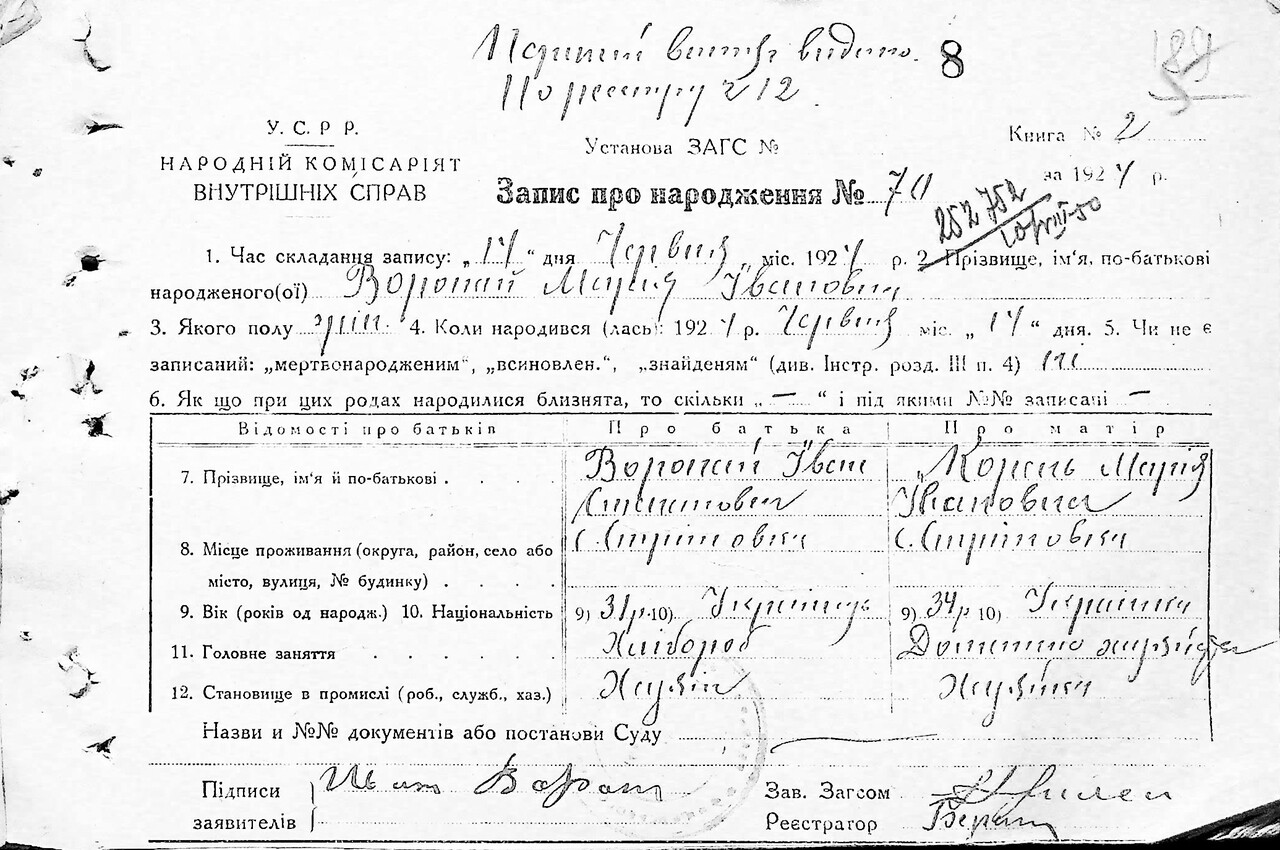 Перший витяг видано. 8 189
По реєстру ч 12
У. С. Р Р.
НАРОДНІЙ КОМІСАРІЯТ
ВНУТРІШНІХ СПРАВ
Установа ЗАГС №
Книга № 2
за 1924 р.
Запис про народження № 70
252 752
1. Час складання запису: „14“ дня Червня міс. 1924 р. 2 Прізвище, ім'я, по-батькові
народженого(ої) Воропай Марія Івановна
3. Якого полу жін. 4. Коли народився (лась): 1924 р. Червня міс. „14“ дня. 5. Чи не є
записаний: „мертвонародженим“, „всиновлен.“, „знайденям“ (див. Інстр. розд. III п. 4) ні
6. Як що при цих родах народилися близнята, то скільки „—“ і під якими №№ записані —
Відомості про батьків Про батька Про матір
7. Прізвище, ім'я й по-батькові . . . . Воропай Іван Корень Марія
Степанович Івановна
8. Місце проживання (округа, район, село або с. с.
місто, вулиця, № будинку) . . . .
9. Вік (років од народж.) 10. Національність 9) 31р. 10) Українець 9) 34р 10) Українка
11. Головне заняття . . . . . . Хлібороб Домашнє
12. Становище в промислі (роб., служб., хаз.) Хазяїн Хазяйка
Назви и №№ документів або постанови Суду
Підписи Іван Зав. Загсом
заявителів Реєстратор